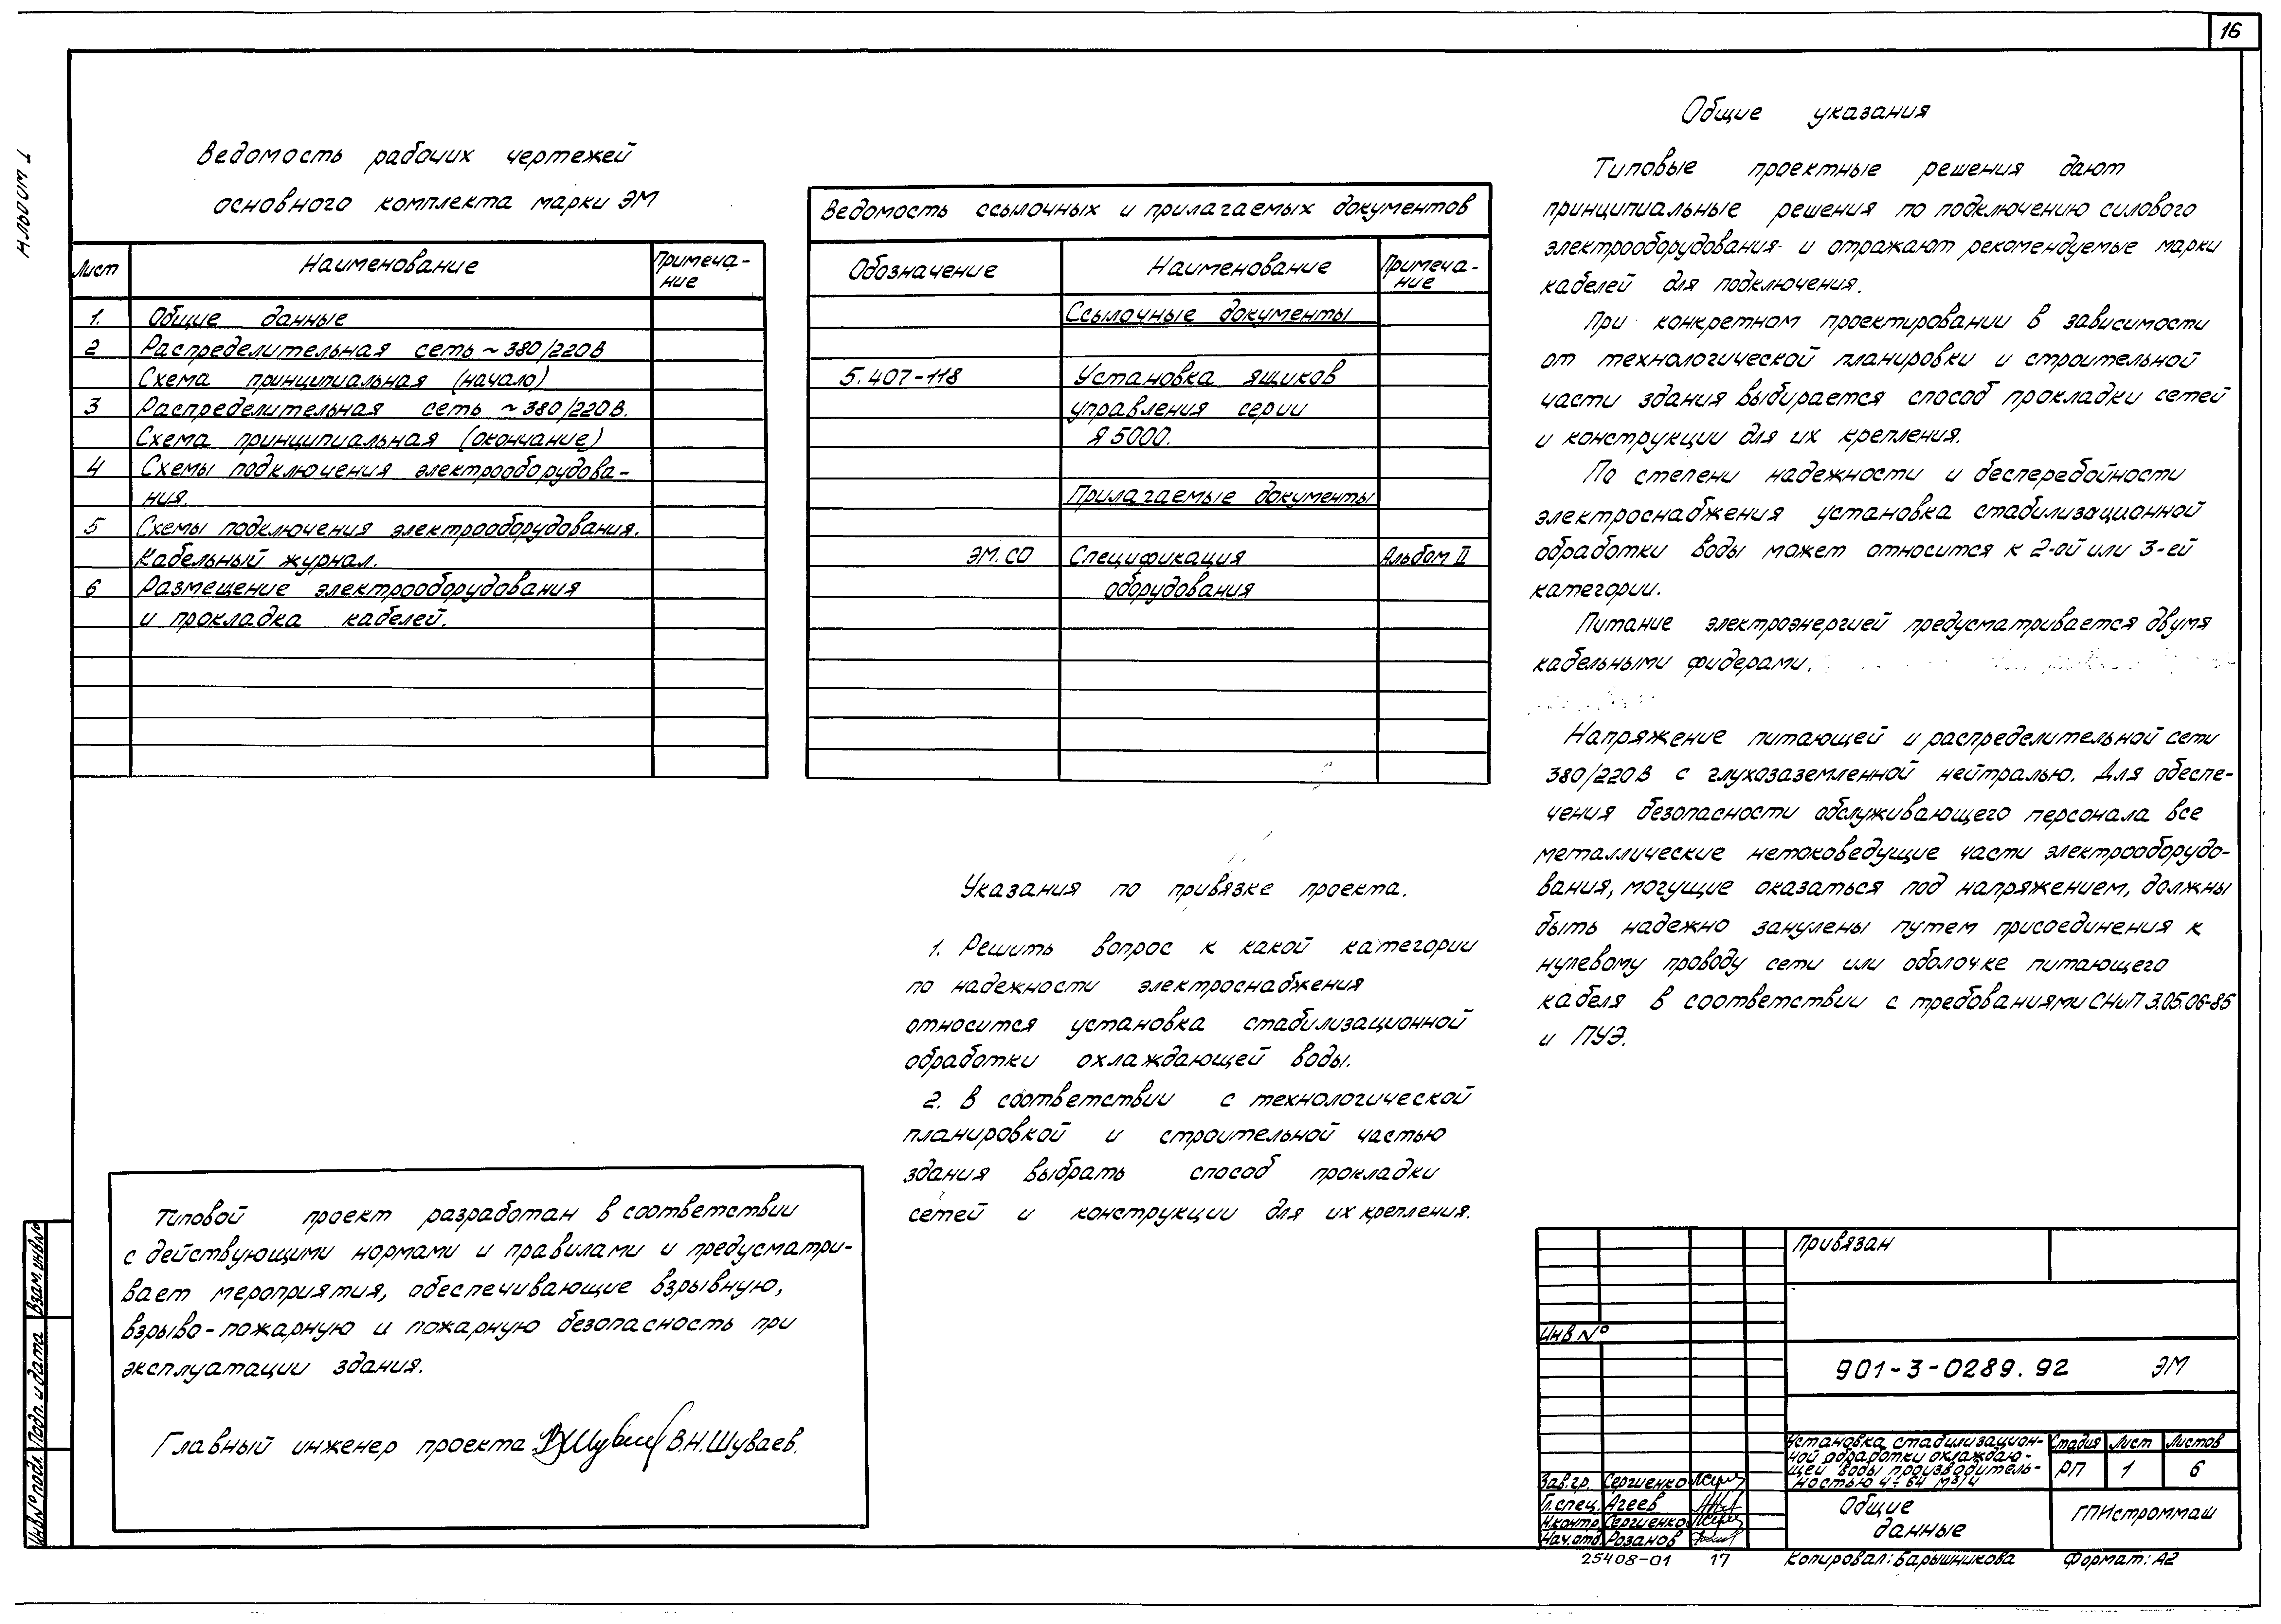 16
Альбом I
Ведомость рабочих чертежей
основного комплекта марки ЭМ
Лист Наименование Примеча-
ние
1. Общие данные
2 Распределительная сеть ~ 380/220В
Схема принципиальная (начало)
3 Распределительная сеть ~ 380/220В.
Схема принципиальная (окончание)
4 Схемы подключения электрооборудова-
ния.
5 Схемы подключения электрооборудования.
Кабельный журнал.
6 Размещение электрооборудования
и прокладка кабелей.
Ведомость ссылочных и прилагаемых документов
Обозначение Наименование Примеча-
ние
Ссылочные документы
5.407-118 Установка ящиков
управления серии
Я 5000.
Прилагаемые документы
ЭМ.СО Спецификация Альбом II
оборудования
Указания по привязке проекта.
1. Решить вопрос к какой категории
по надежности электроснабжения
относится установка стабилизационной
обработки охлаждающей воды.
2. В соответствии с технологической
планировкой и строительной частью
здания выбрать способ прокладки
сетей и конструкции для их крепления.
Общие указания
Типовые проектные решения дают
принципиальные решения по подключению силового
электрооборудования и отражают рекомендуемые марки
кабелей для подключения.
При конкретном проектировании в зависимости
от технологической планировки и строительной
части здания выбирается способ прокладки сетей
и конструкции для их крепления.
По степени надежности и бесперебойности
электроснабжения установка стабилизационной
обработки воды может относится к 2-ой или 3-ей
категории.
Питание электроэнергией предусматривается двумя
кабельными фидерами.
Напряжение питающей и распределительной сети
380/220В с глухозаземленной нейтралью. Для обеспе-
чения безопасности обслуживающего персонала все
металлические нетоковедущие части электрооборудо-
вания, могущие оказаться под напряжением, должны
быть надежно занулены путем присоединения к
нулевому проводу сети или оболочке питающего
кабеля в соответствии с требованиями СНиП 3.05.06-85
и ПУЭ.
Типовой проект разработан в соответствии
с действующими нормами и правилами и предусматри-
вает мероприятия, обеспечивающие взрывную,
взрыво-пожарную и пожарную безопасность при
эксплуатации здания.
Главный инженер проекта В.Н.Шуваев.
Взам.инв.№
Подп. и дата
Инв.№ подл.
Привязан
Инв №
901-3-0289.92 ЭМ
Установка стабилизацион-
ной обработки охлаждаю-
щей воды производитель-
ностью 4÷64 м³/ч
Стадия Лист Листов
РП 1 6
Зав.гр. Сергиенко
Гл.спец. Агеев
Н.контр. Сергиенко
Нач.отд. Розанов
Общие
данные
ГПИстроммаш
25408-01 17 Копировал: Барышникова Формат: А2